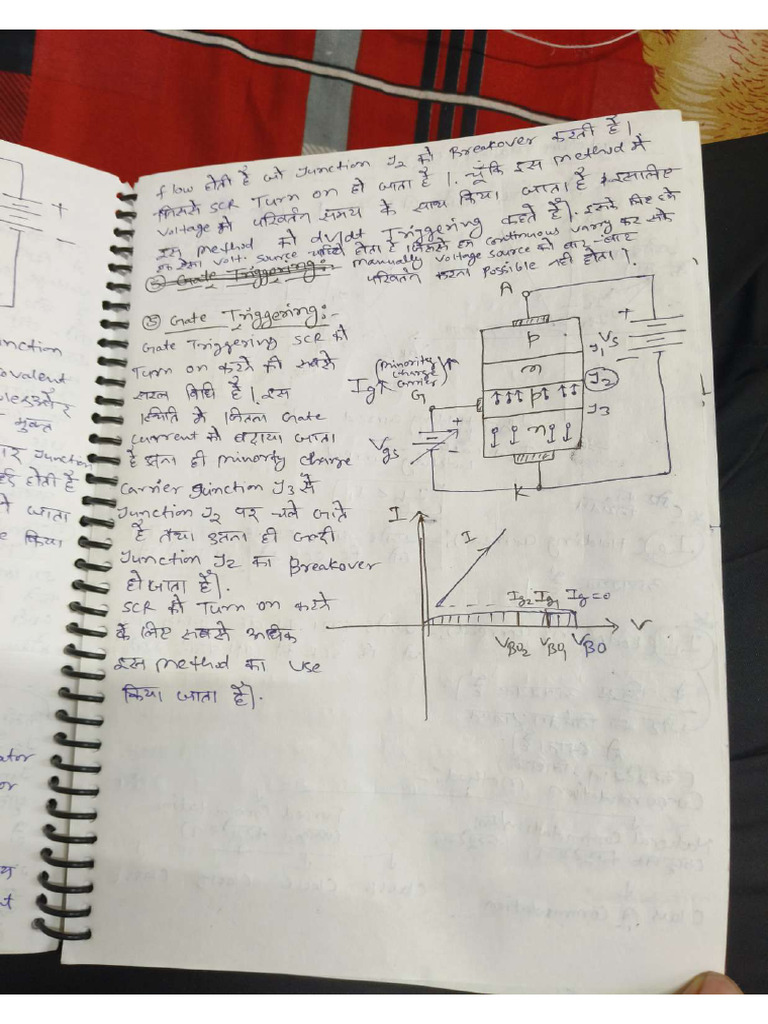 flow होती है जो Junction J2 को Breakover करती है।
जिससे SCR Turn on हो जाता है। चूँकि इस method में
voltage को परिवर्तन समय के साथ किया जाता है इसलिए
इस method को dv/dt Triggering कहते हैं। इसके लिए हमे
volt. source चाहिये होता है जिसको हम continuous varry कर सके
manually voltage source को बार-बार
परिवर्तन करना possible नही होता।
⑤ Gate Triggering:-
⑤ Gate Triggering:-
Gate Triggering SCR को
Turn on करने की सबसे
सरल विधि है। इस
स्थिति मे जितना Gate
current को बढ़ाया जाता
है उतना ही minority charge
carrier junction J3 से
Junction J2 पर चले जाते
है तथा उतना ही जल्दी
Junction J2 का Breakover
हो जाता है।
SCR को Turn on करने
के लिए सबसे अधिक
इस method का use
किया जाता है।
A
P
n
P
n
J1
J2
J3
+
Vs
-
Ig↑ (minority charge carrier)↑
G
Vgs
+
-
K
I
I
Ig2 Ig1 Ig=0
VBO2 VBO1 VBO
V
+
-
nction
ovalent
मुक्त
Junction
होती है
जाता
किया
ator
or